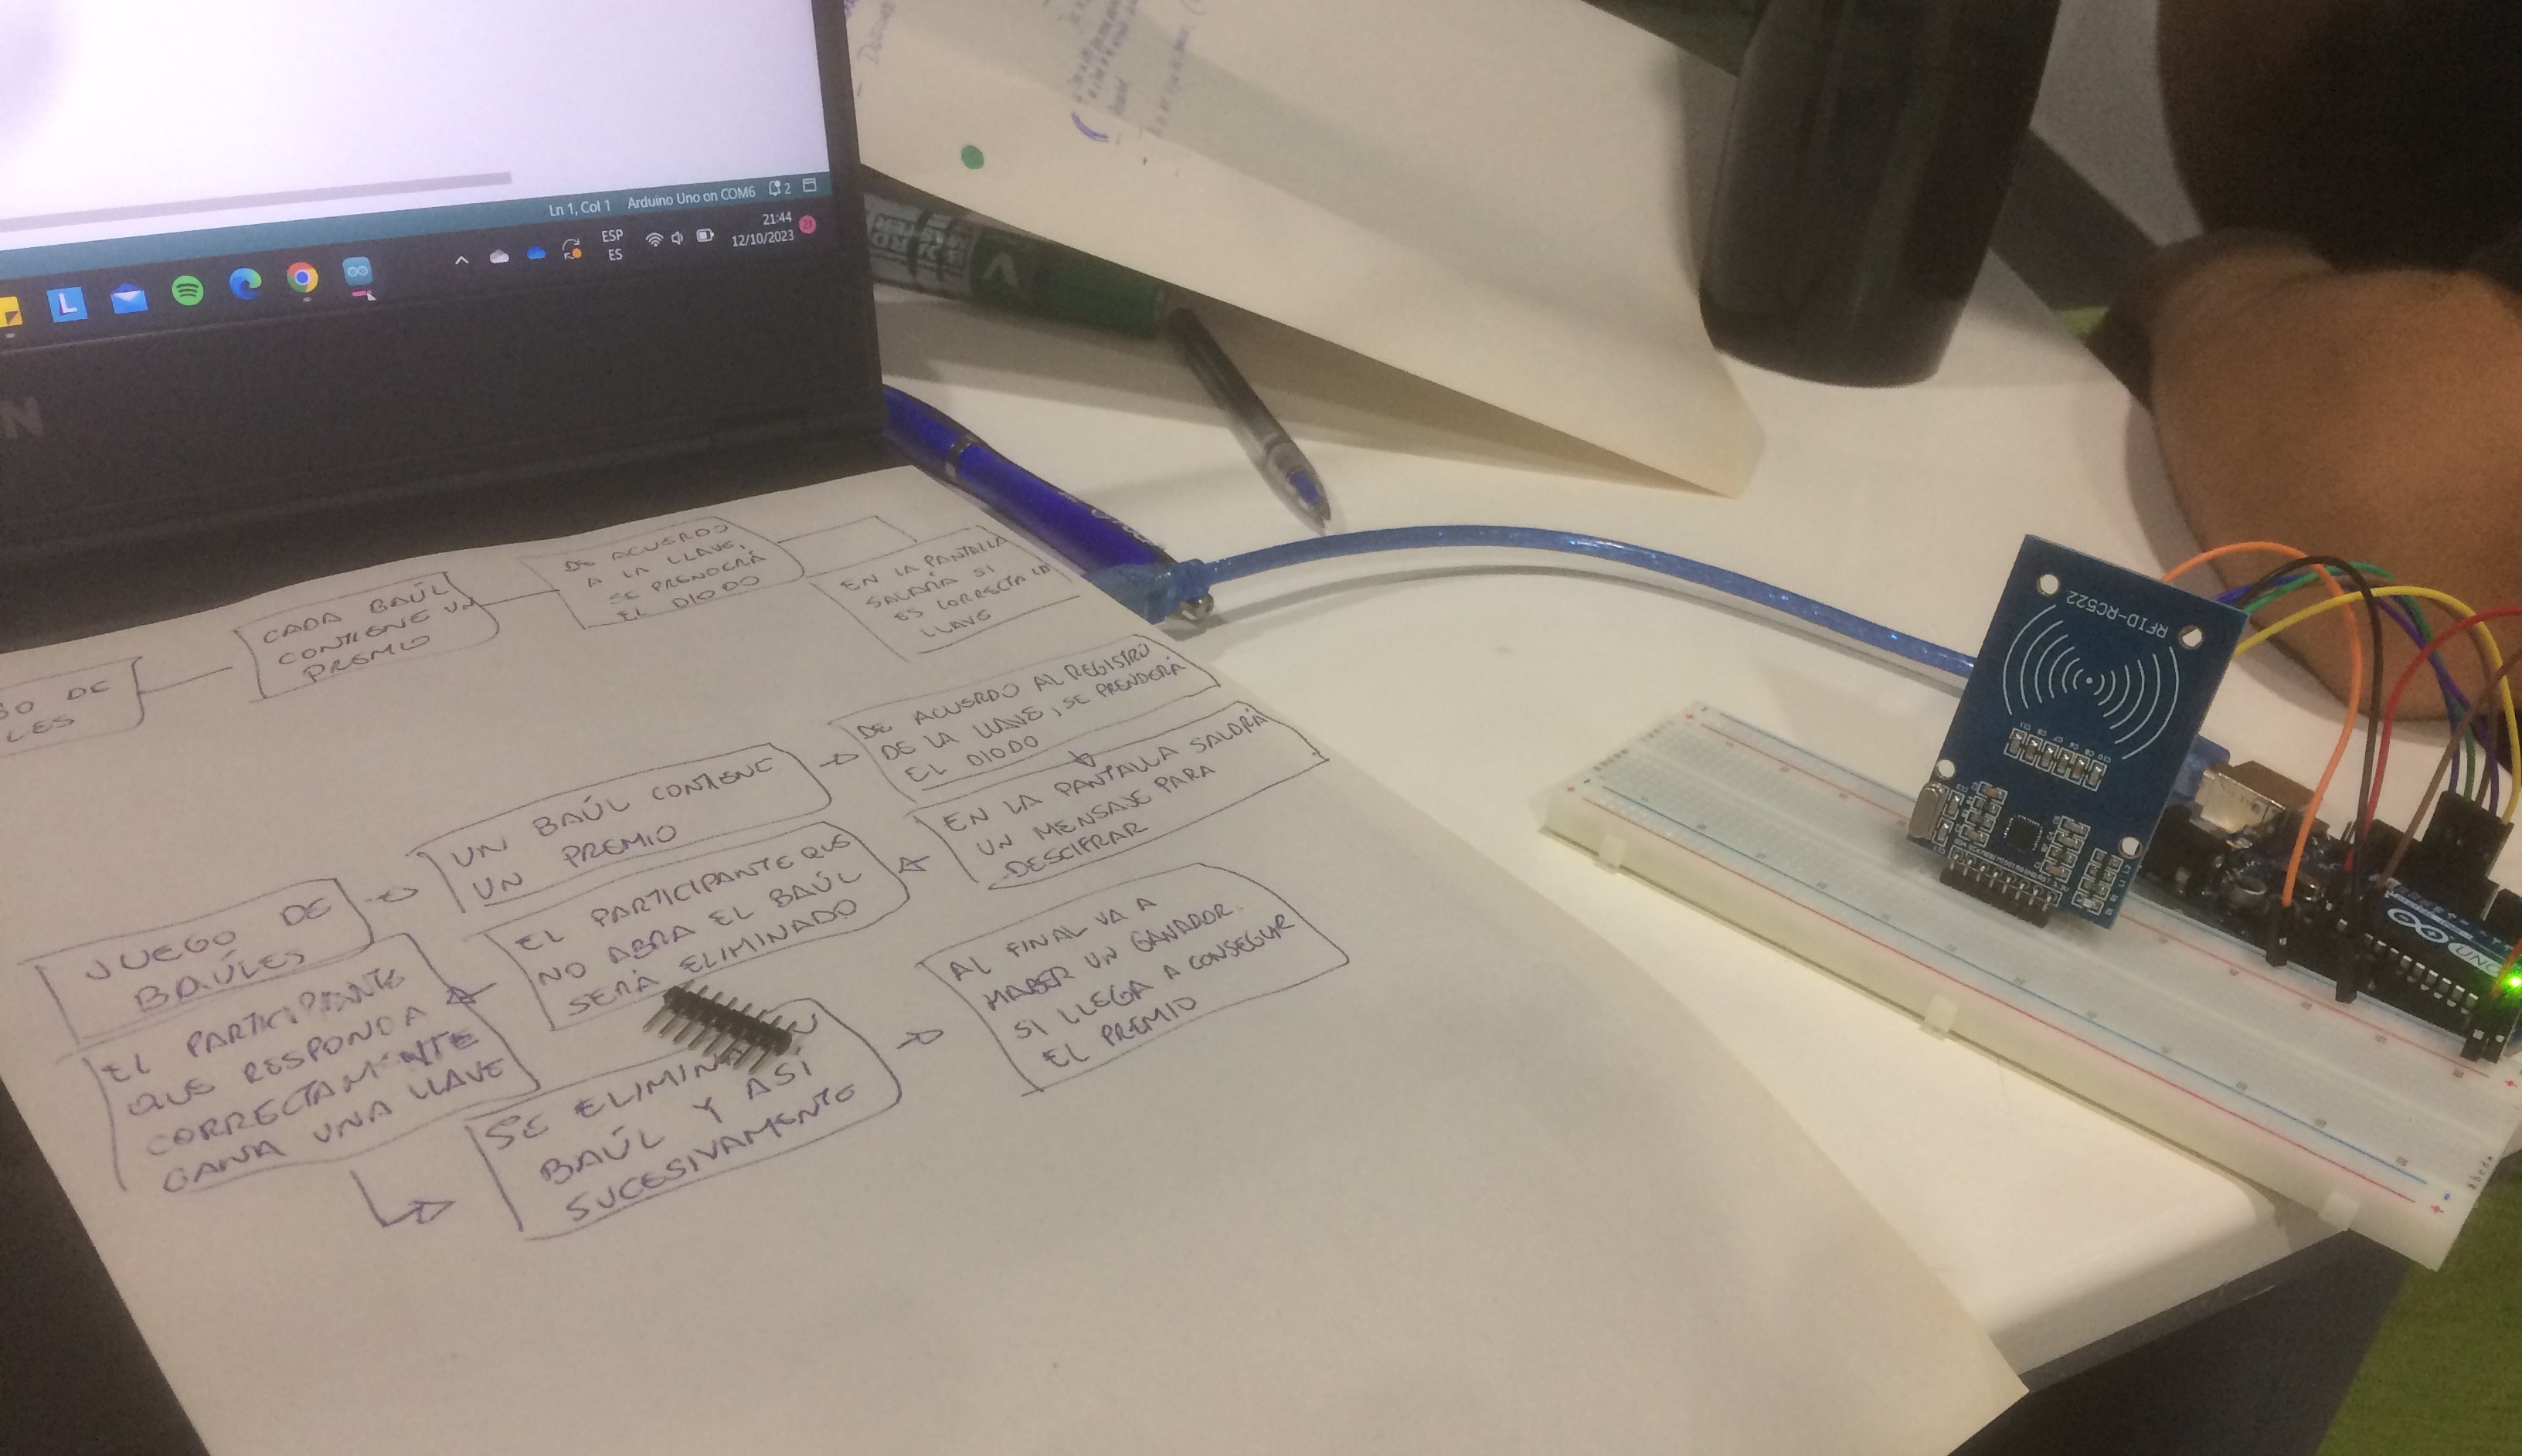 Ln 1, Col 1 Arduino Uno on COM6 2
ESP
ES
21:44
12/10/2023
21
L
N
GO DE
LES
CADA BAÚL
CONTIENE UN
PREMIO
DE ACUERDO
A LA LLAVE,
SE PRENDERÁ
EL DIODO
EN LA PANTALLA
SALDRÁ SI
ES CORRECTA LA
LLAVE
JUEGO DE
BAÚLES
UN BAÚL CONTIENE
UN PREMIO
DE ACUERDO AL REGISTRO
DE LA LLAVE, SE PRENDERÁ
EL DIODO
EN LA PANTALLA SALDRÁ
UN MENSAJE PARA
DESCIFRAR
EL PARTICIPANTE QUE
NO ABRA EL BAÚL
SERÁ ELIMINADO
EL PARTICIPANTE
QUE RESPONDA
CORRECTAMENTE
GANA UNA LLAVE
SE ELIMIN
BAÚL Y ASÍ
SUCESIVAMENTE
AL FINAL VA A
HABER UN GANADOR
SI LLEGA A CONSEGUIR
EL PREMIO
RFID-RC522
UNO